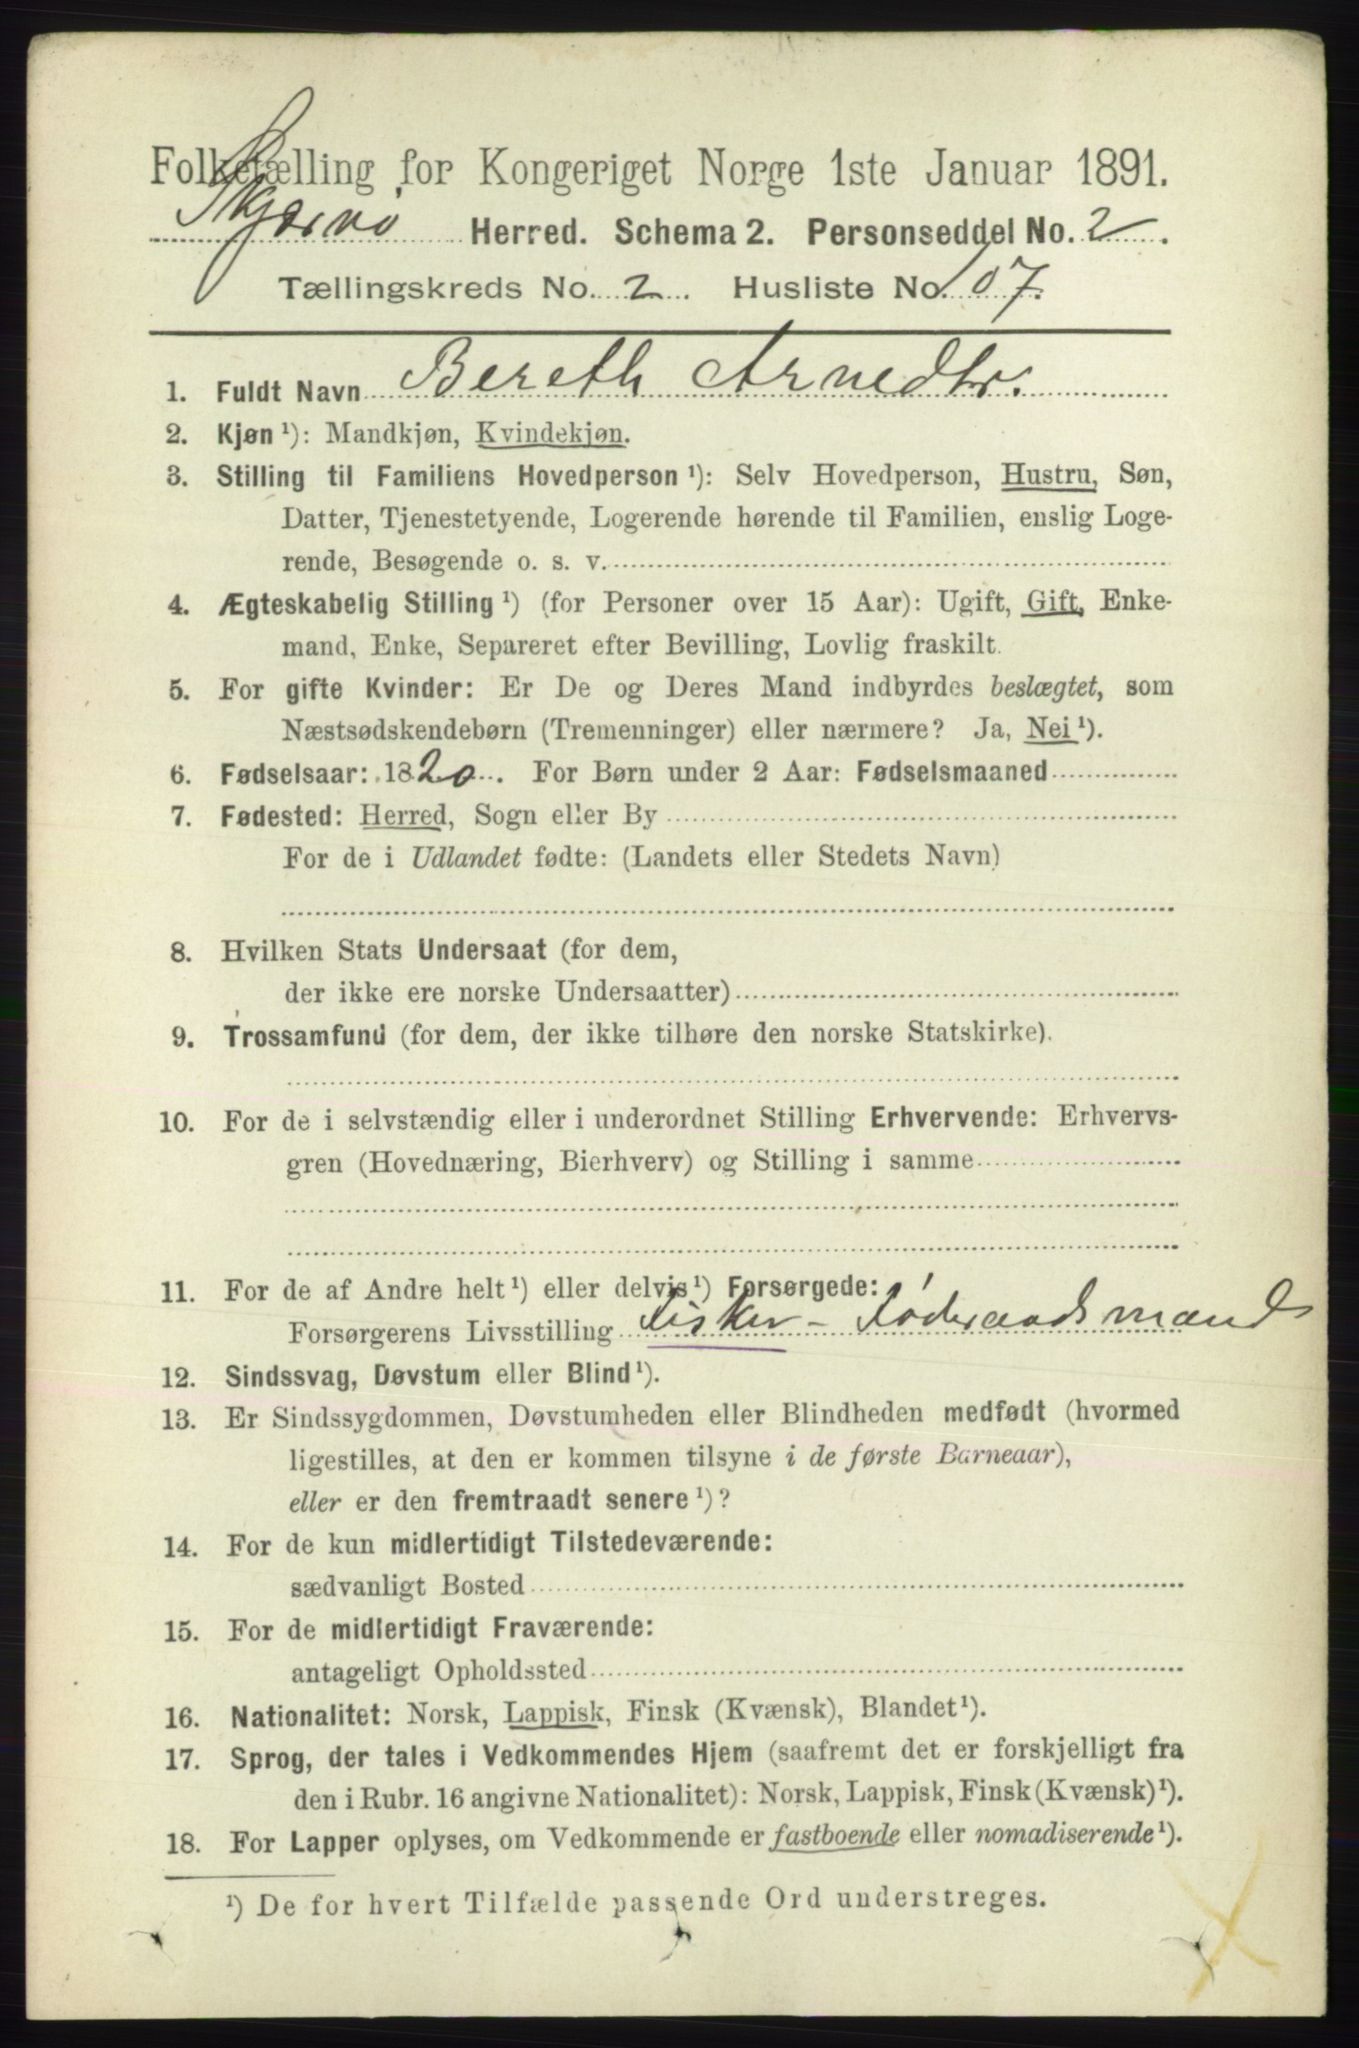 Folketælling for Kongeriget Norge 1ste Januar 1891.
Skjærvø Herred. Schema 2. Personseddel No. 2.
Tællingskreds No. 2. Husliste No. 107.
1. Fuldt Navn Bereth Arnedtr.
2. Kjøn ¹): Mandkjøn, Kvindekjøn.
3. Stilling til Familiens Hovedperson ¹): Selv Hovedperson, Hustru, Søn,
Datter, Tjenestetyende, Logerende hørende til Familien, enslig Loge-
rende, Besøgende o. s. v.
4. Ægteskabelig Stilling ¹) (for Personer over 15 Aar): Ugift, Gift, Enke-
mand, Enke, Separeret efter Bevilling, Lovlig fraskilt.
5. For gifte Kvinder: Er De og Deres Mand indbyrdes beslægtet, som
Næstsødskendebørn (Tremenninger) eller nærmere? Ja, Nei ¹).
6. Fødselsaar: 1820. For Børn under 2 Aar: Fødselsmaaned
7. Fødested: Herred, Sogn eller By
For de i Udlandet fødte: (Landets eller Stedets Navn)
8. Hvilken Stats Undersaat (for dem,
der ikke ere norske Undersaatter)
9. Trossamfund (for dem, der ikke tilhøre den norske Statskirke).
10. For de i selvstændig eller i underordnet Stilling Erhvervende: Erhvervs-
gren (Hovednæring, Bierhverv) og Stilling i samme
11. For de af Andre helt ¹) eller delvis ¹) Forsørgede:
Forsørgerens Livsstilling Fisker - Føderaadsmand
12. Sindssvag, Døvstum eller Blind ¹).
13. Er Sindssygdommen, Døvstumheden eller Blindheden medfødt (hvormed
ligestilles, at den er kommen tilsyne i de første Barneaar),
eller er den fremtraadt senere ¹)?
14. For de kun midlertidigt Tilstedeværende:
sædvanligt Bosted
15. For de midlertidigt Fraværende:
antageligt Opholdssted
16. Nationalitet: Norsk, Lappisk, Finsk (Kvænsk), Blandet ¹).
17. Sprog, der tales i Vedkommendes Hjem (saafremt det er forskjelligt fra
den i Rubr. 16 angivne Nationalitet): Norsk, Lappisk, Finsk (Kvænsk) ¹).
18. For Lapper oplyses, om Vedkommende er fastboende eller nomadiserende ¹).
¹) De for hvert Tilfælde passende Ord understreges.